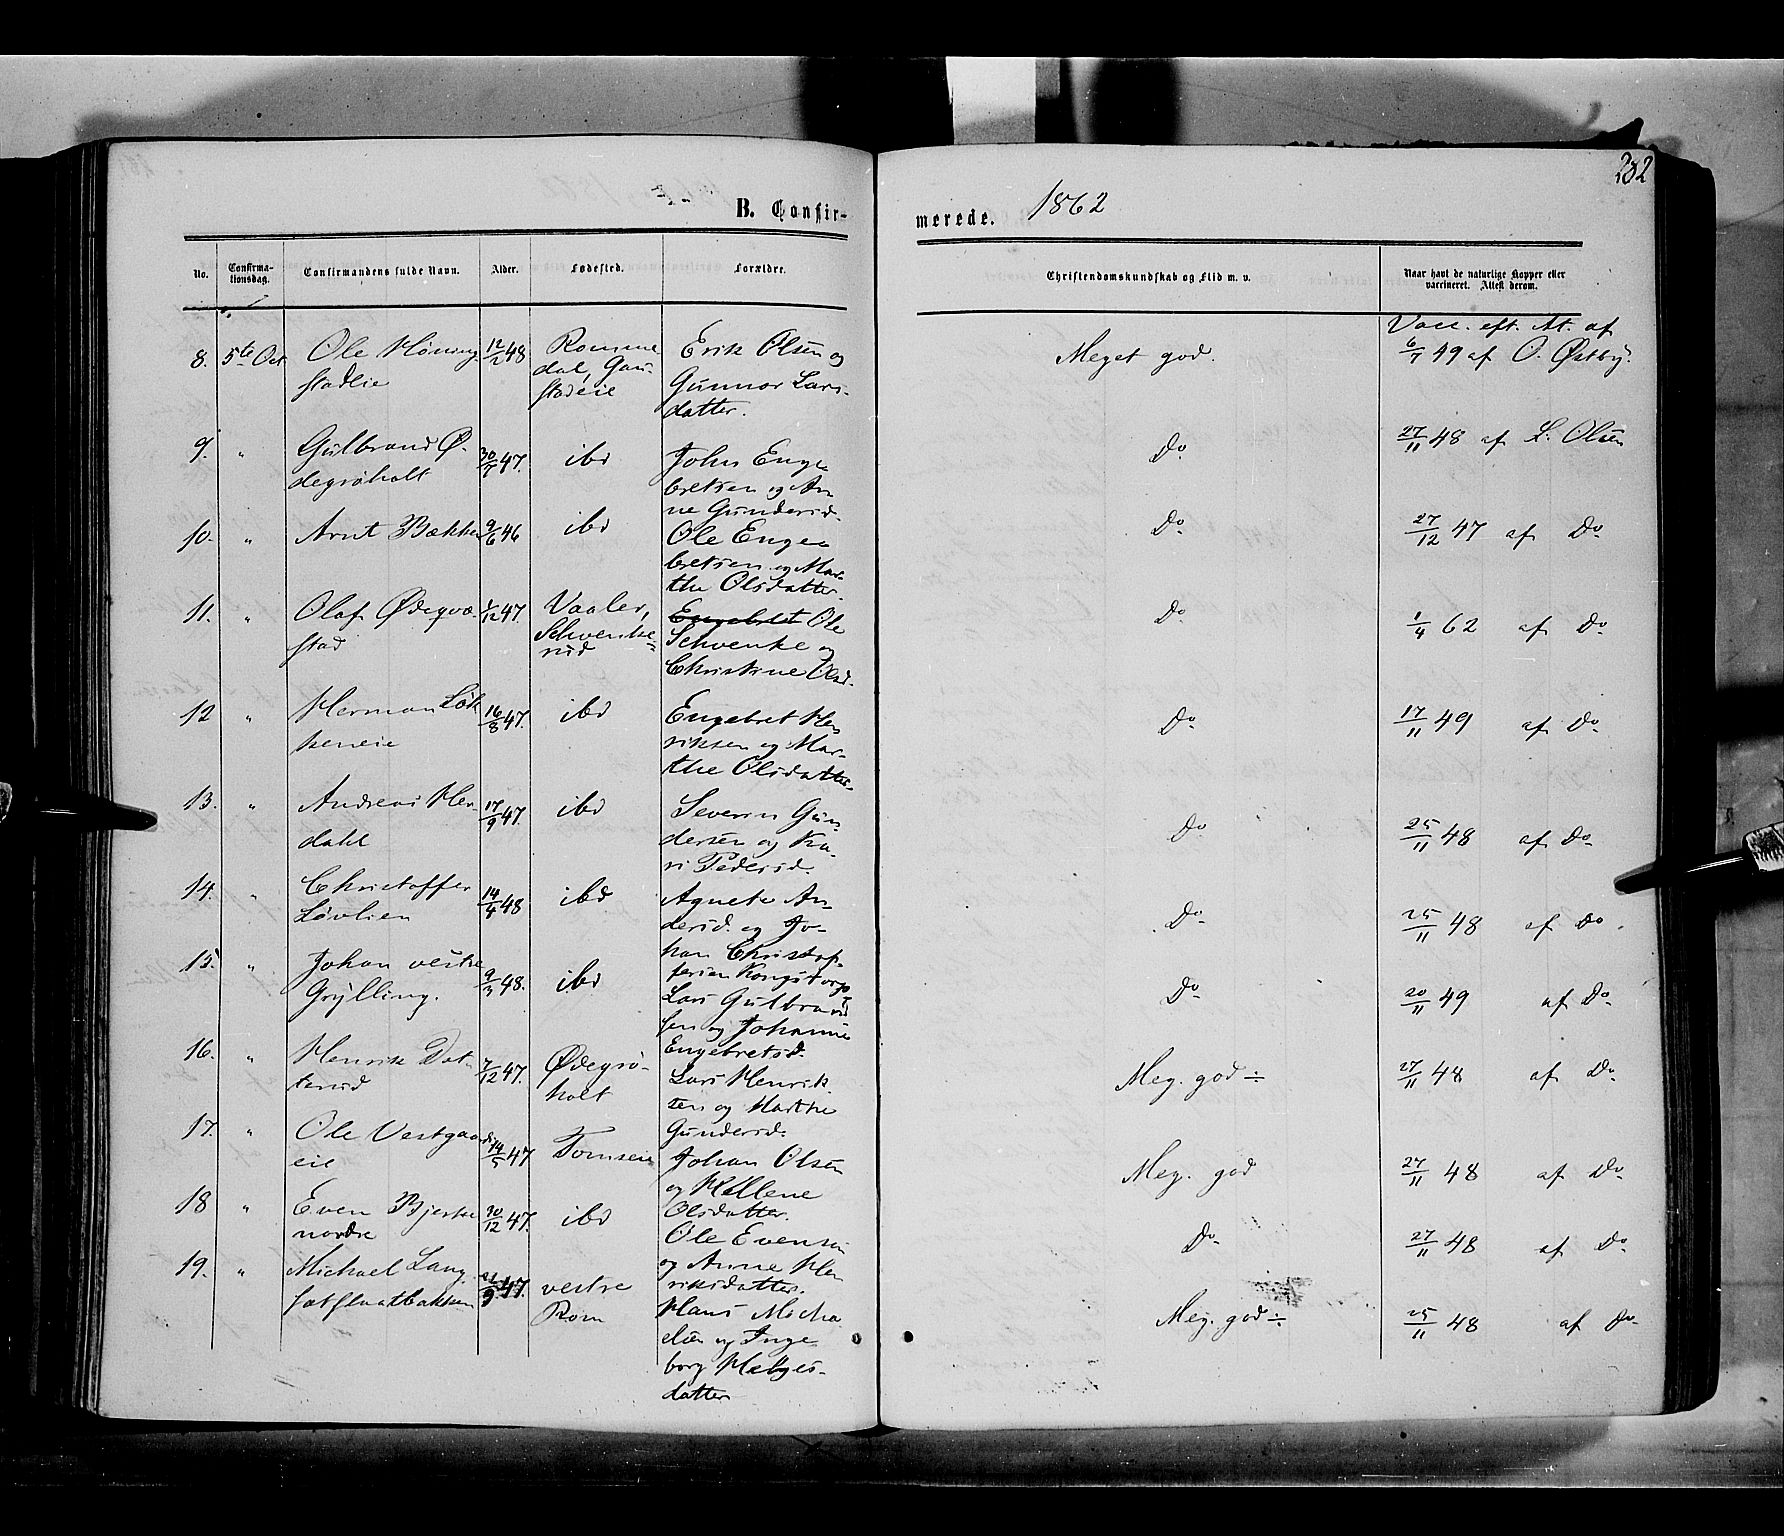 232
B. Confir-
merede. 1862
No.
Confirma-
tionsdag.
Confirmandens fulde Navn.
Alder.
Fødested.
Forældre.
Christendomskundskab og Flid m. v.
Naar havt de naturlige Kopper eller
vaccineret. Attest derom.
8. 5te Oct Ole Höning
stadlie
12/2 48
Romme
dal, Gau-
stadeie
Erik Olsen og
Gunnor Lars-
datter.
Meget god.
Vacc. eft. At. af
6/7 49 af O. Østby.
9. " Gulbrand Ø-
degröholt
30/7 47.
ibd
John Enge-
bretsen og An
ne Gundersd.
Do
27/11 48 af L. Olsen
10. " Arnt Bækken
9/6 46
ibd
Ole Enge-
bretsen og Mar-
the Olsdatter.
Do
27/12 47 af Do
11. " Olaf Ødeqvæ-
stad
1/12 47.
Vaaler,
Schvenke-
rud
Engebret Ole
Schvenke og
Christine Olsd.
Do
1/4 62 af Do
12 " Herman Løk
keneie
16/8 47.
ibd
Engebret Hen
riksen og Mar-
the Olsdatter.
Do
17/11 49 af Do
13. " Andreas Her-
dahl
17/9 47.
ibd
Severin Gun-
dersen og Ka-
ri Pedersd.
Do
25/11 48 af Do
14. " Christoffer
Løvlien
14/4 48
ibd
Agnete An-
dersd. og Jo-
han Christof-
fersen Kongstorp
Do
25/11 48 af Do
15. " Johan vestre
Grylling.
9/3 48.
ibd
Lars Gulbrand
sen og Johanne
Engebretsd.
Do
20/11 49 af Do
16. " Henrik Det-
terud
7/12 47.
Ødegrö-
holt
Lars Henrik
sen og Marthe
Gundersd.
Meg. god ÷
27/11 48 af Do
17. " Ole Vestgaards
eie
14/5 47
Tomseie
Johan Olsen
og Hellene
Olsdatter.
Meg. god
27/11 48 af Do
18 " Even Bjerke
nordre
30/12 47.
ibd
Ole Evensen
og Anne Hen
riksdatter.
Do
27/11 48 af Do
19. " Michael Lang-
sætflaatbakken
47.
vestre
Rom
Hans Micha
elsen og Inge
borg Helges-
datter
Meg. god ÷
25/11 48 af Do